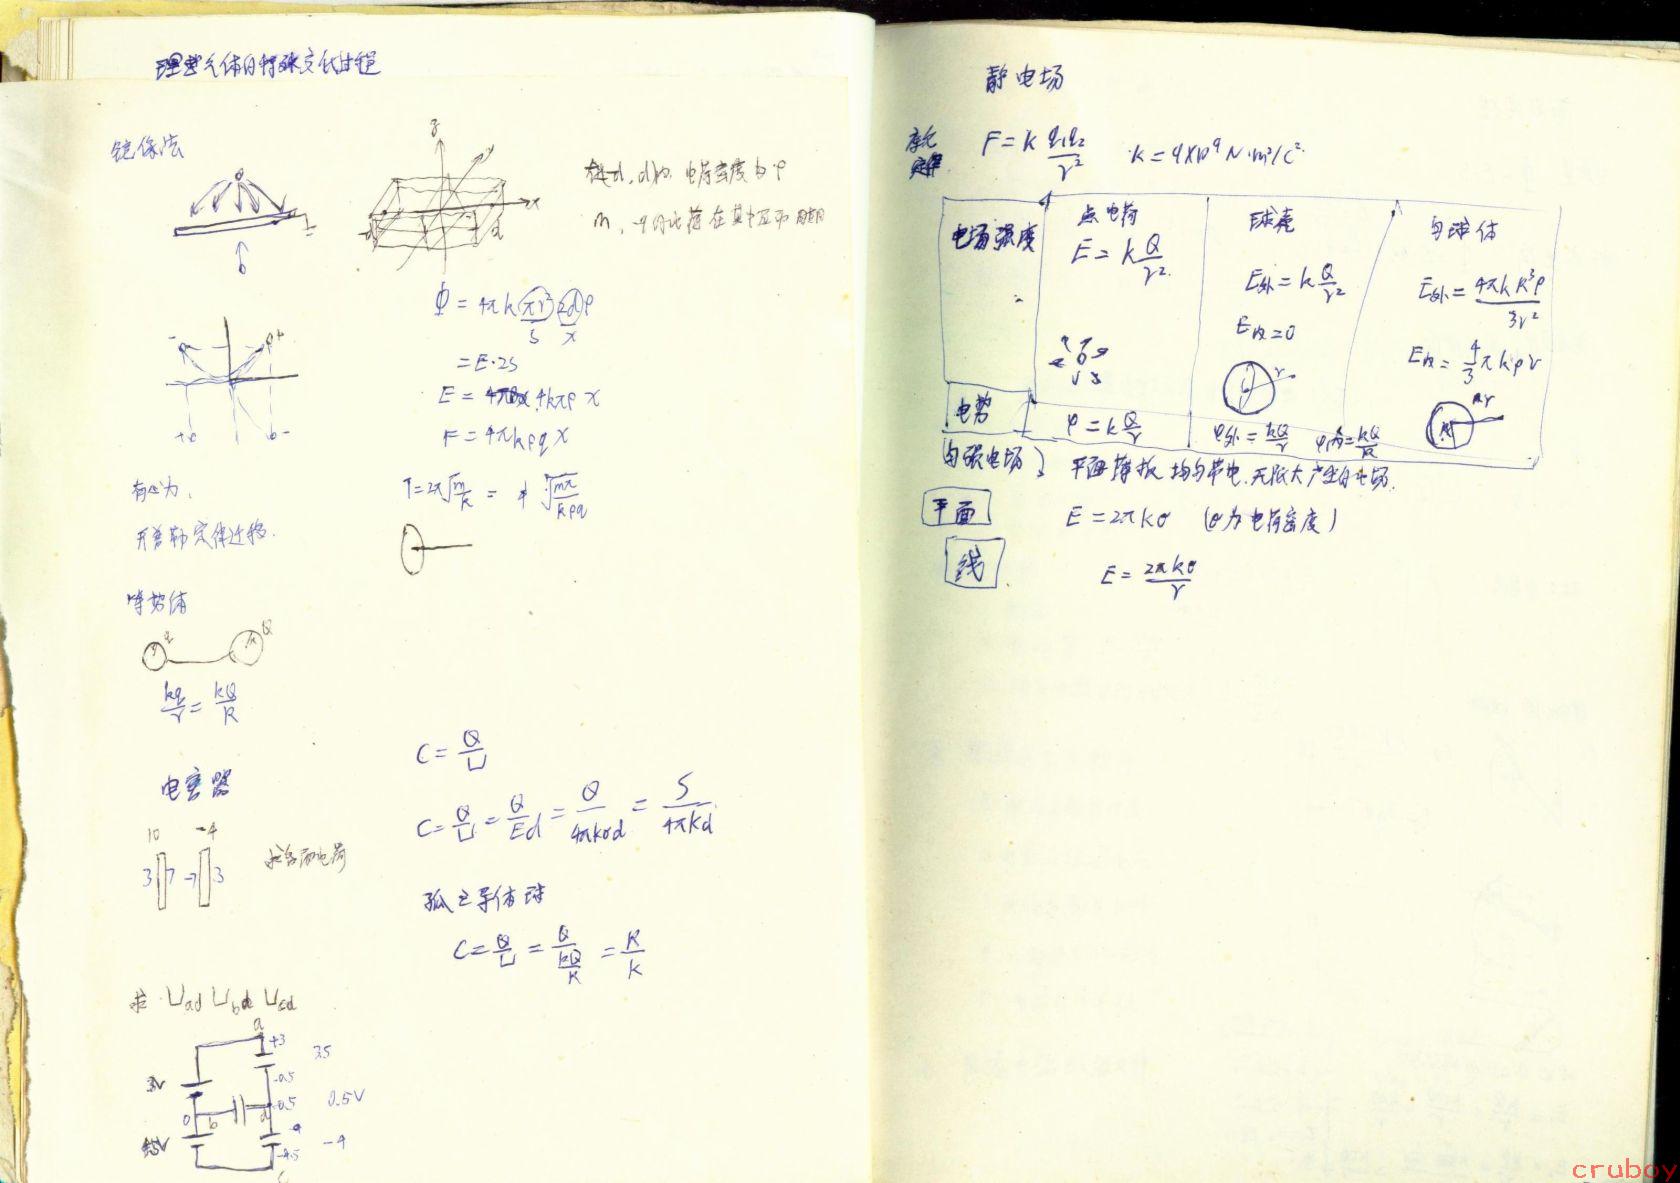 理想气体的特殊变化过程
镜像法
z
y
x
在-d,d间 电荷密度为ρ
m,-q的电荷在其中运动 周期
Φ = 4πk πr² 2d ρ
S x
= E·2S
E = 4kπρ x
F = 4πkρq x
有心力,
开普勒定律迁移.
T = 2π√(m/k) = √(mπ/kρq)
等势体
q Q
r R
kq/r = kQ/R
电容器
10 -4
3 7 -7 3
求各面电荷
C = Q/U
C = Q/U = Q/Ed = Q/4πkσd = S/4πkd
孤立导体球
C = Q/U = Q/(kQ/R) = R/k
求 Uad Ubd Ucd
a
+3
3.5
3V
-0.5
-0.5
0.5V
0
b
d
-4
-4.5
c
静电场
库仑定律
F = k q₁q₂/r²
k = 9×10⁹ N·m²/C²
电场强度
点电荷
E = k Q/r²
球壳
E外 = k Q/r²
E内 = 0
r
匀球体
E外 = 4πkR³ρ/3r²
E内 = 4/3 πkρr
R r
电势
φ = k Q/r
φ外 = kQ/r φ内 = kQ/R
匀强电场
平面薄板 均匀带电.无限大产生的电场.
平面
E = 2πkσ (σ为电荷密度)
线
E = 2πkσ/r
cruboy